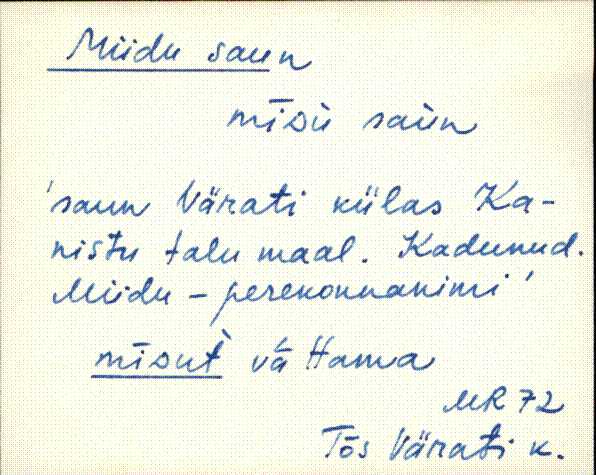 Miidu saun
mīsu saun
'saun Värati külas Ka-
nistu talu maal. Kadunud.
Miidu - perekonnanimi'
mīsut vä Hanna
MR 72
Tõs Värati k.